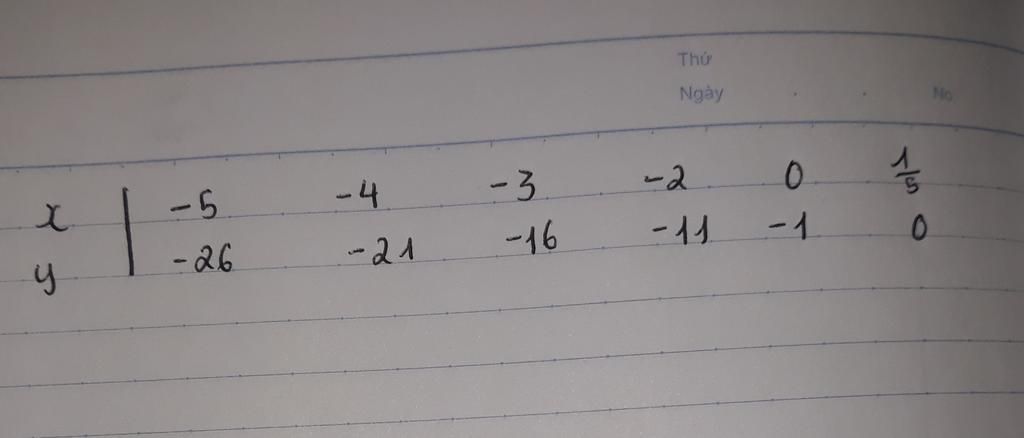 Thứ
Ngày . . No
x | -5 -4 -3 -2 0 1/5
y | -26 -21 -16 -11 -1 0